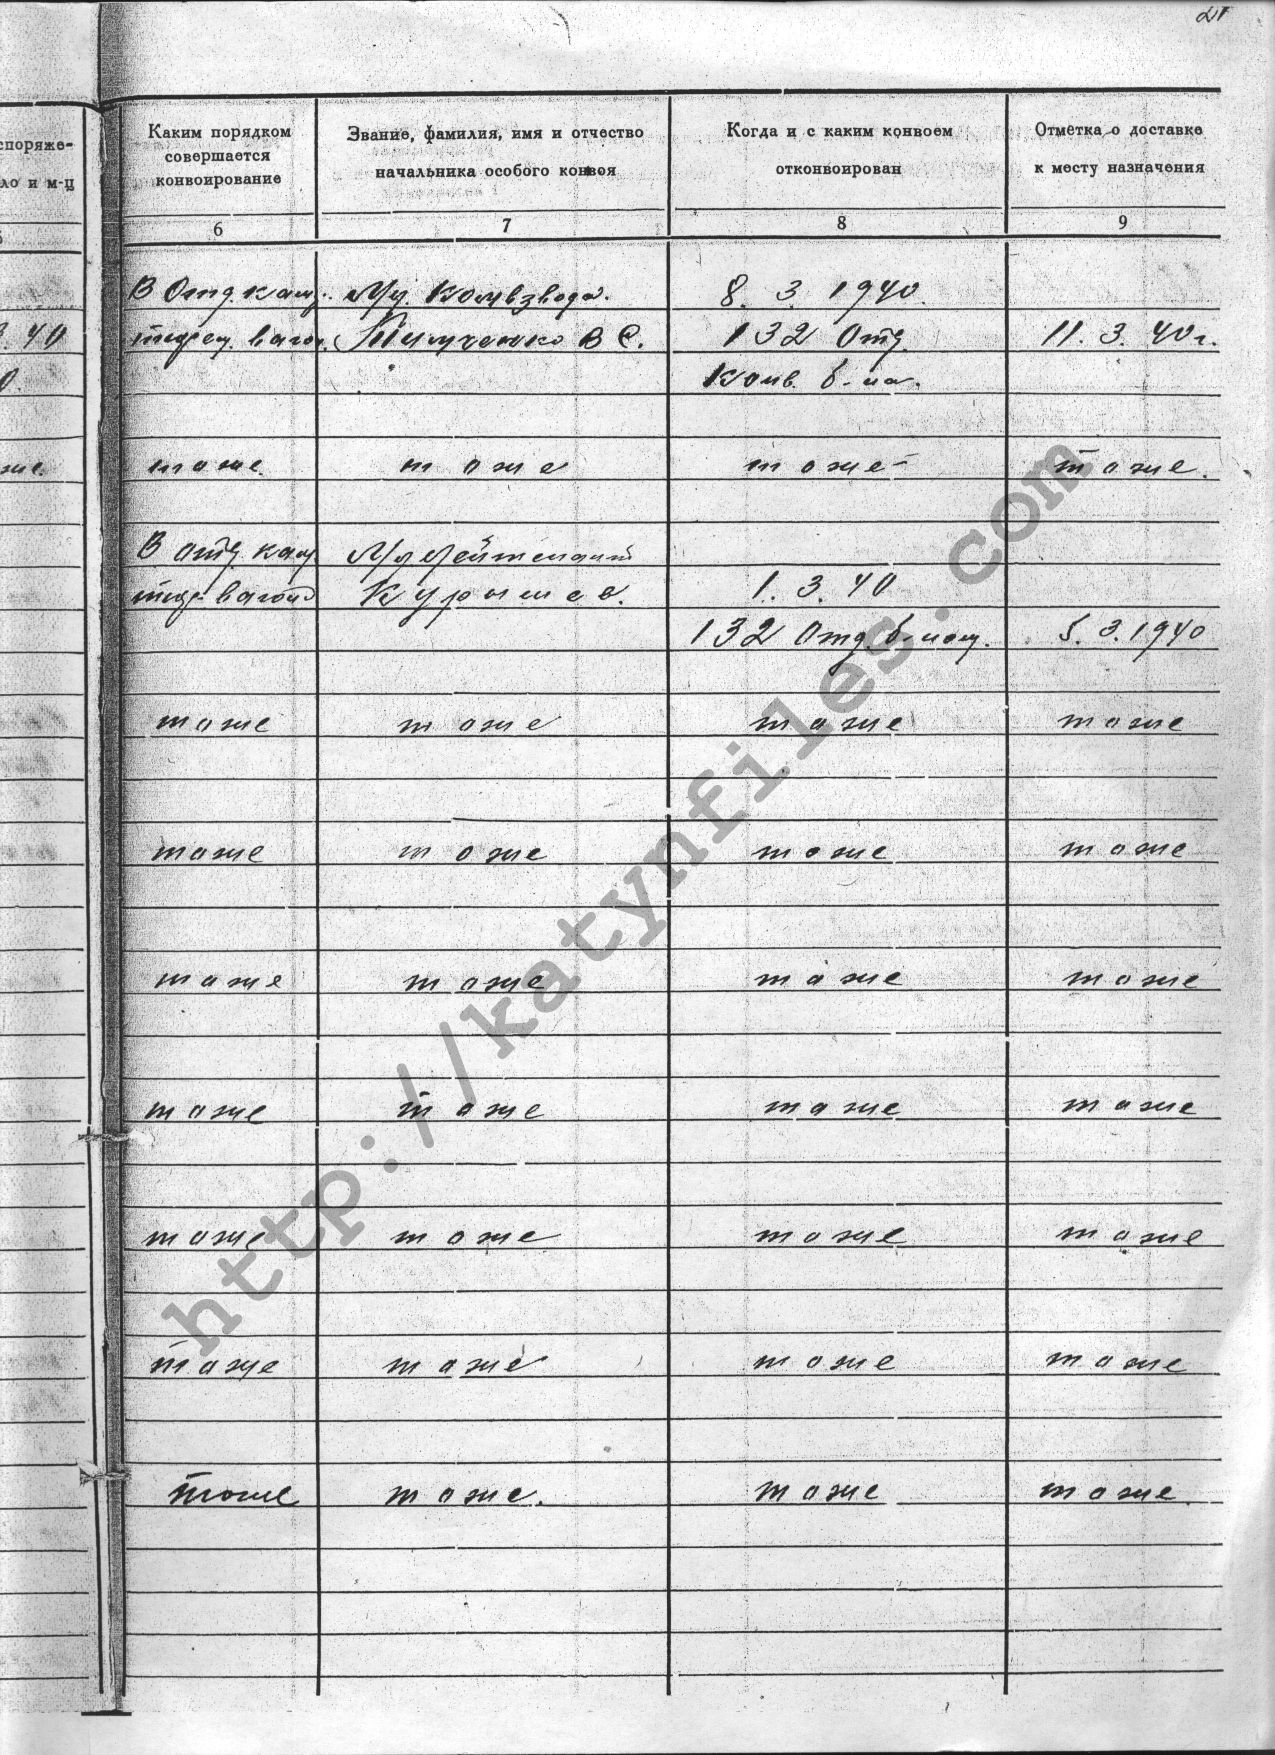 21
споряже-
ло и м-ц
Каким порядком
совершается
конвоирование
Звание, фамилия, имя и отчество
начальника особого конвоя
Когда и с каким конвоем
отконвоирован
Отметка о доставке
к месту назначения
6
7
8
9
В Отд. кам. Мл. Комвзвода. 8. 3. 1940.
3. 40 вагон. Тимченко В С. 132 Отд. 11. 3. 40 г.
0. Конв. б-на.
же. тоже. тоже тоже тоже.
В отд. кам Мл лейтенант
вагона Курышев. 1. 3. 40
132 Отд. б-ном. 5. 3. 1940
тоже тоже тоже тоже
тоже тоже тоже тоже
тоже тоже тоже тоже
тоже тоже тоже тоже
тоже тоже тоже тоже
тоже тоже тоже тоже
тоже тоже. тоже тоже.
http://katynfiles.com